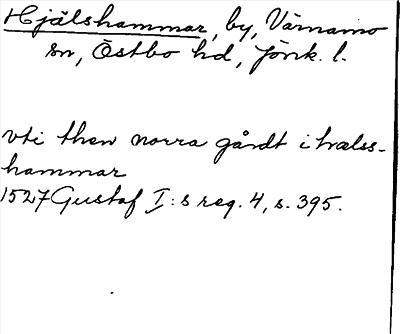 Hjälshammar, by, Värnamo
sn, Östbo hd, Jönk. l.
vti then norra gårdt i træless-
hammar
1527 Gustaf I:s reg. 4, s. 395.